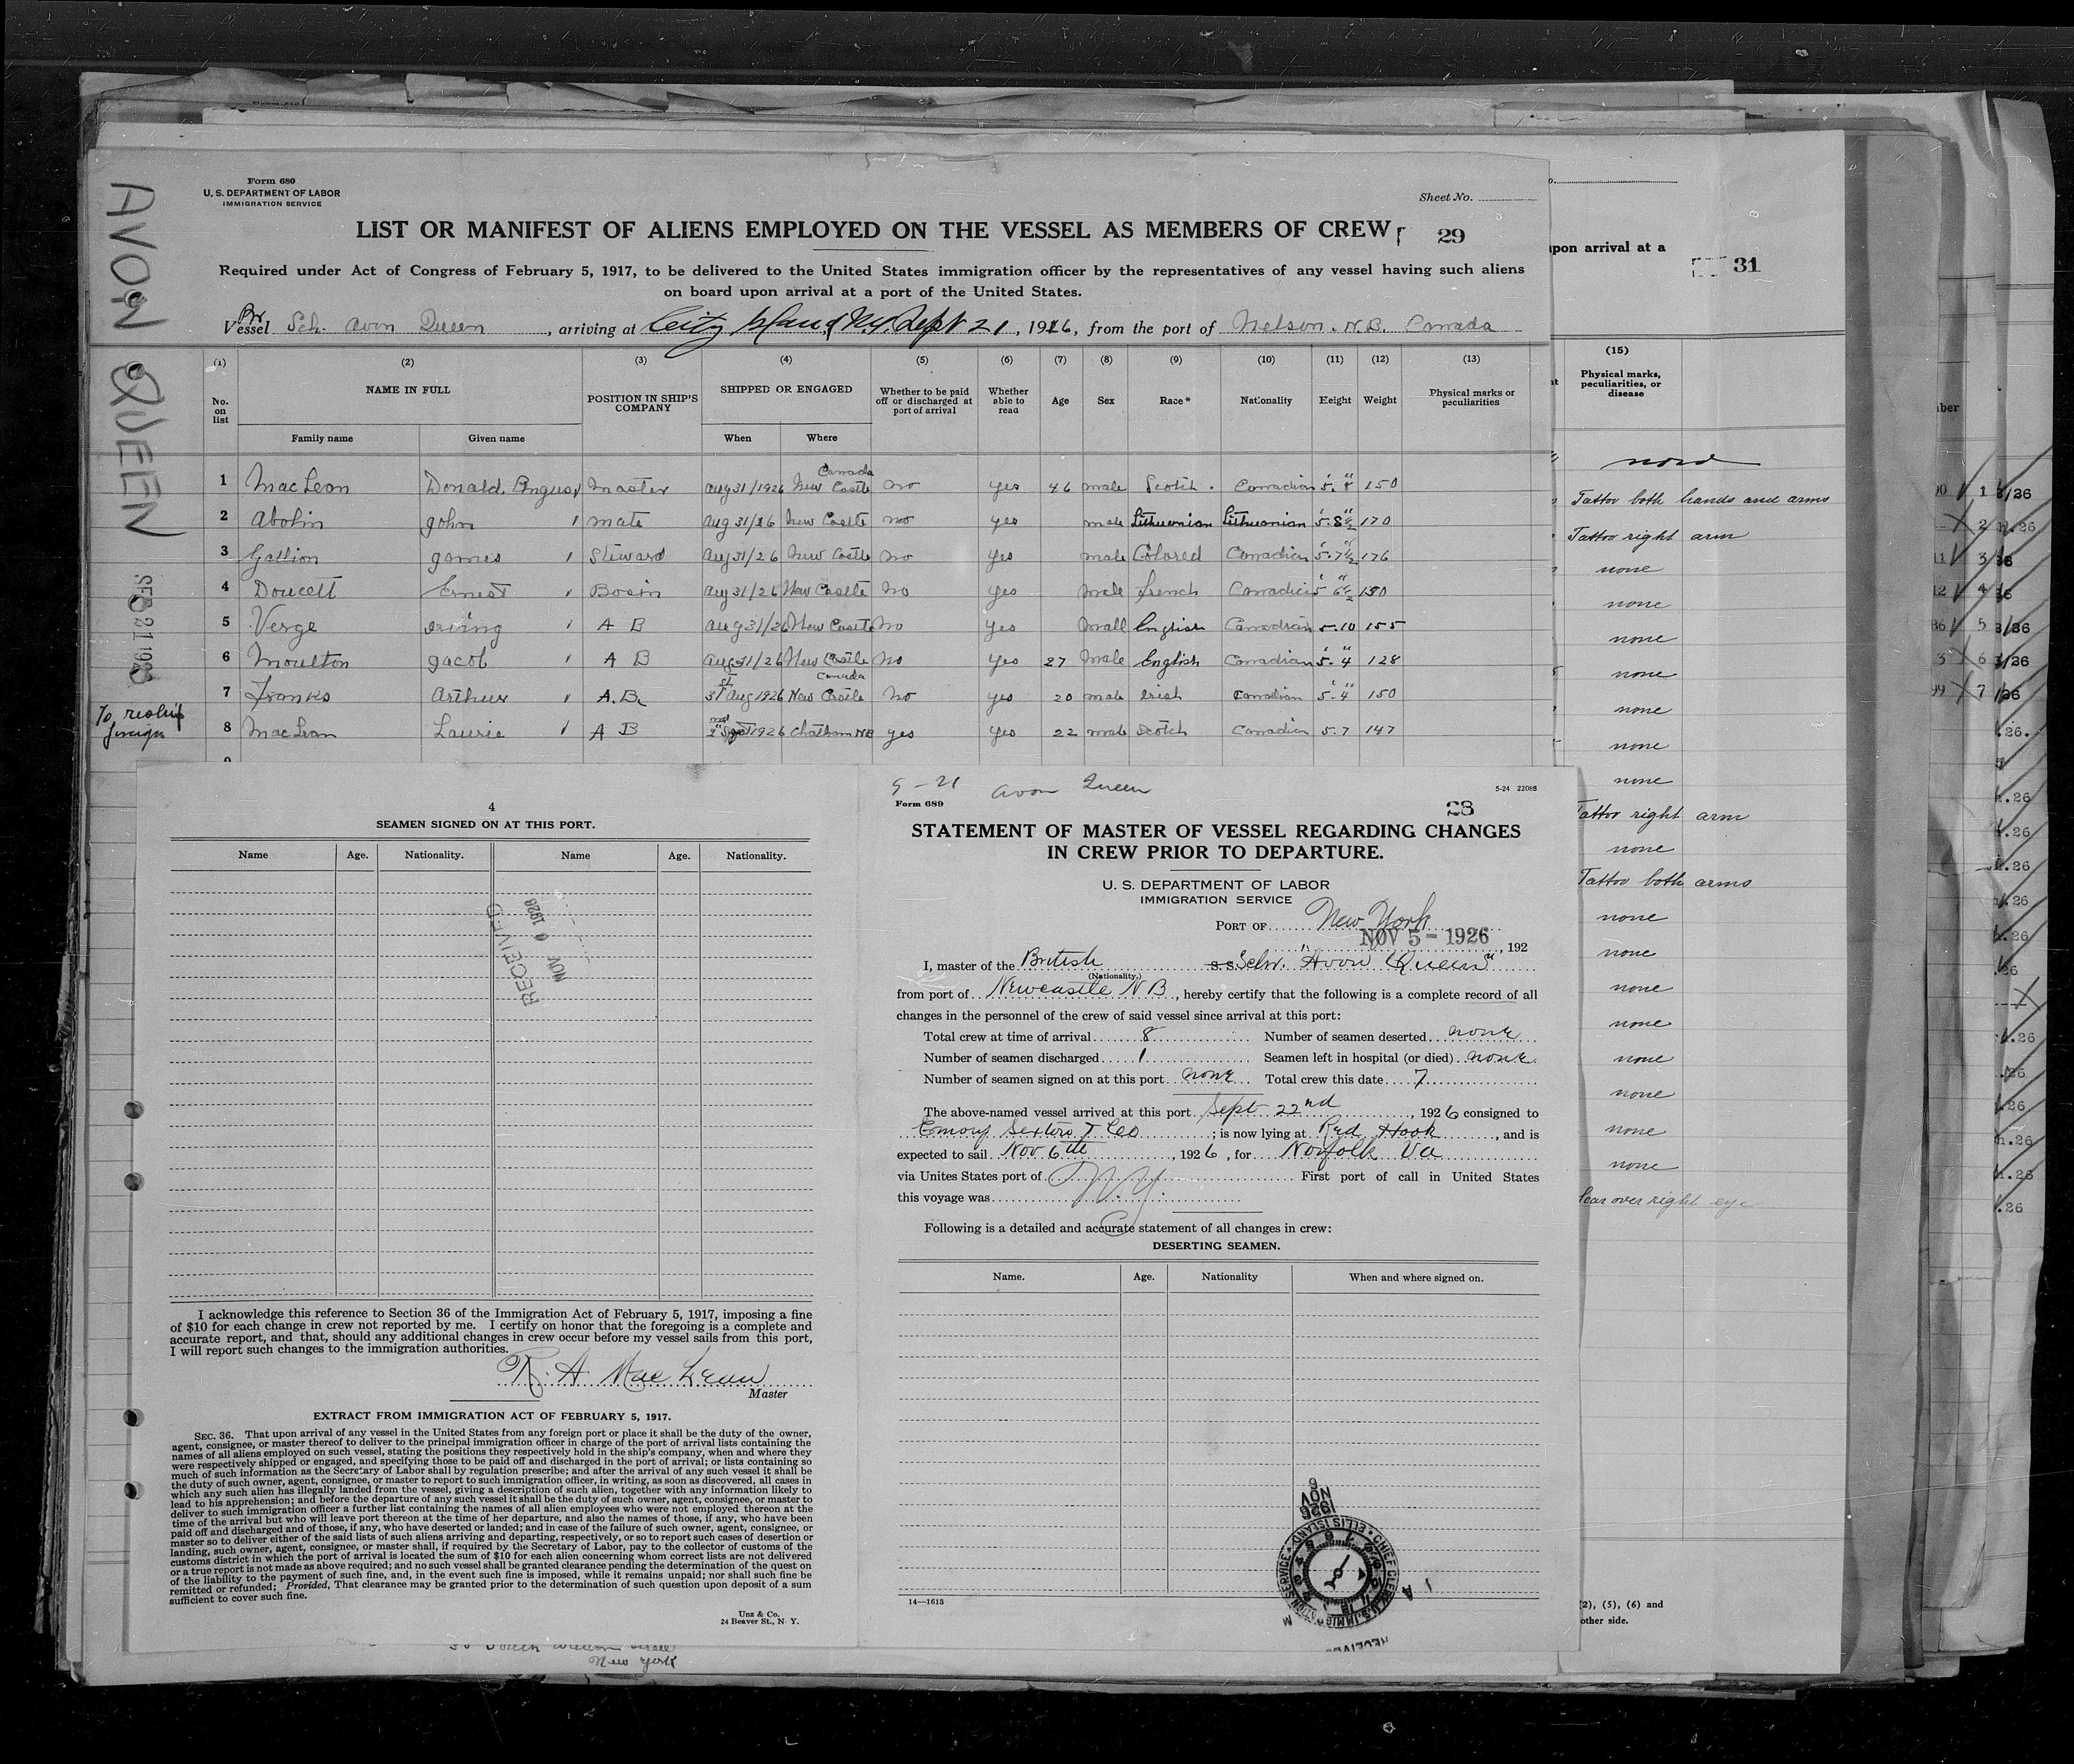 AVON QUEEN
Form 680
U. S. DEPARTMENT OF LABOR
IMMIGRATION SERVICE
Sheet No.
LIST OR MANIFEST OF ALIENS EMPLOYED ON THE VESSEL AS MEMBERS OF CREW
29
Required under Act of Congress of February 5, 1917, to be delivered to the United States immigration officer by the representatives of any vessel having such aliens
on board upon arrival at a port of the United States.
Br
Vessel Sch. Avon Queen, arriving at City Island N.Y. Sept 21, 1926, from the port of Nelson. N.B. Canada
(1) (2) (3) (4) (5) (6) (7) (8) (9) (10) (11) (12) (13)
No. on list
NAME IN FULL
Family name Given name
POSITION IN SHIP'S COMPANY
SHIPPED OR ENGAGED
When Where
Whether to be paid off or discharged at port of arrival
Whether able to read
Age Sex Race* Nationality Height Weight
Physical marks or peculiarities
Canada
1 MacLean Donald. Angus Master Aug 31/1926 New Castle No Yes 46 male Scotch. Canadian 5.8 150
2 Abolin John mate Aug 31/26 New Castle no yes male Lithuanian Lithuanian 5.8½ 170
3 Gallion James Steward Aug 31/26 New Castle No Yes male Colored Canadian 5.7½ 176
4 Doucett Ernest Bosin Aug 31/26 New Castle No Yes male french Canadian 5 6½ 180
5 Verge Irving A B Aug 31/26 New Castle No Yes mall English Canadian 5.10 155
6 Moulton Jacob A B Aug 31/26 New Castle No Yes 27 male English Canadian 5.4 128
Canada
7 Franks Arthur A.B. 31st Aug 1926 New Castle No yes 20 male irish Canadian 5.4 150
To reship foreign
8 MacLean Laurie A B Sept 1926 Chatham NB yes Yes 22 male Scotch Canadian 5.7 147
upon arrival at a
31
(15)
Physical marks,
peculiarities, or
disease
Tattoo both hands and arms
Tattoo right arm
none
none
none
none
none
none
none
Tattoo right arm
none
Tattoo both arms
none
none
none
none
none
none
none
none
Scar over right eye
(2), (5), (6) and
other side.
4
SEAMEN SIGNED ON AT THIS PORT.
Name Age. Nationality. Name Age. Nationality.
RECEIVED
NOV 6 1926
I acknowledge this reference to Section 36 of the Immigration Act of February 5, 1917, imposing a fine
of $10 for each change in crew not reported by me. I certify on honor that the foregoing is a complete and
accurate report, and that, should any additional changes in crew occur before my vessel sails from this port,
I will report such changes to the immigration authorities.
MacLean
Master
EXTRACT FROM IMMIGRATION ACT OF FEBRUARY 5, 1917.
SEC. 36. That upon arrival of any vessel in the United States from any foreign port or place it shall be the duty of the owner,
agent, consignee, or master thereof to deliver to the principal immigration officer in charge of the port of arrival lists containing the
names of all aliens employed on such vessel, stating the positions they respectively hold in the ship's company, when and where they
were respectively shipped or engaged, and specifying those to be paid off and discharged in the port of arrival; or lists containing so
much of such information as the Secretary of Labor shall by regulation prescribe; and after the arrival of any such vessel it shall be
the duty of such owner, agent, consignee, or master to report to such immigration officer, in writing, as soon as discovered, all cases in
which any such alien has illegally landed from the vessel, giving a description of such alien, together with any information likely to
lead to his apprehension; and before the departure of any such vessel it shall be the duty of such owner, agent, consignee, or master to
deliver to such immigration officer a further list containing the names of all alien employees who were not employed thereon at the
time of the arrival but who will leave port thereon at the time of her departure, and also the names of those, if any, who have been
paid off and discharged and of those, if any, who have deserted or landed; and in case of the failure of such owner, agent, consignee, or
master so to deliver either of the said lists of such aliens arriving and departing, respectively, or so to report such cases of desertion or
landing, such owner, agent, consignee, or master shall, if required by the Secretary of Labor, pay to the collector of customs of the
customs district in which the port of arrival is located the sum of $10 for each alien concerning whom correct lists are not delivered
or a true report is not made as above required; and no such vessel shall be granted clearance pending the determination of the quest on
of the liability to the payment of such fine, and, in the event such fine is imposed, while it remains unpaid; nor shall such fine be
remitted or refunded; Provided, That clearance may be granted prior to the determination of such question upon deposit of a sum
sufficient to cover such fine.
Unz & Co.
24 Beaver St., N. Y.
New York
9-21 Avon Queen
5-24 22088
Form 689
28
STATEMENT OF MASTER OF VESSEL REGARDING CHANGES
IN CREW PRIOR TO DEPARTURE.
U. S. DEPARTMENT OF LABOR
IMMIGRATION SERVICE
PORT OF New York
NOV 5 - 1926, 192
I, master of the British S. S. Schr. "Avon Queen"
(Nationality.)
from port of Newcastle N B, hereby certify that the following is a complete record of all
changes in the personnel of the crew of said vessel since arrival at this port:
Total crew at time of arrival 8 Number of seamen deserted none
Number of seamen discharged 1 Seamen left in hospital (or died) none
Number of seamen signed on at this port none Total crew this date 7
The above-named vessel arrived at this port Sept 22nd, 1926 consigned to
Co; is now lying at Red Hook, and is
expected to sail Nov 6th, 1926, for Norfolk Va
via Unites States port of First port of call in United States
this voyage was N.Y.
Following is a detailed and accurate statement of all changes in crew:
DESERTING SEAMEN.
Name. Age. Nationality When and where signed on.
14—1613
1926 NOV 6
CHIEF CLERK U.S. IMMIGRATION SERVICE ELLIS ISLAND
RECEIVED